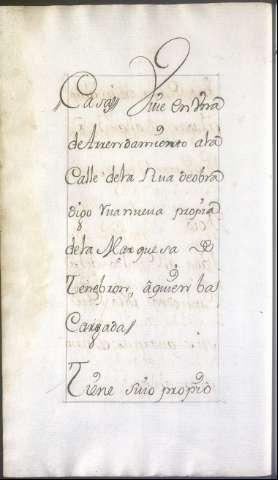 Casas Vive en Una
de Arrendamiento a la
Calle de la Rua de obra
digo Rua nueva propia
de la Marquesa de
Tenebron, a quien ba
Cargada
Tiene suio proprio